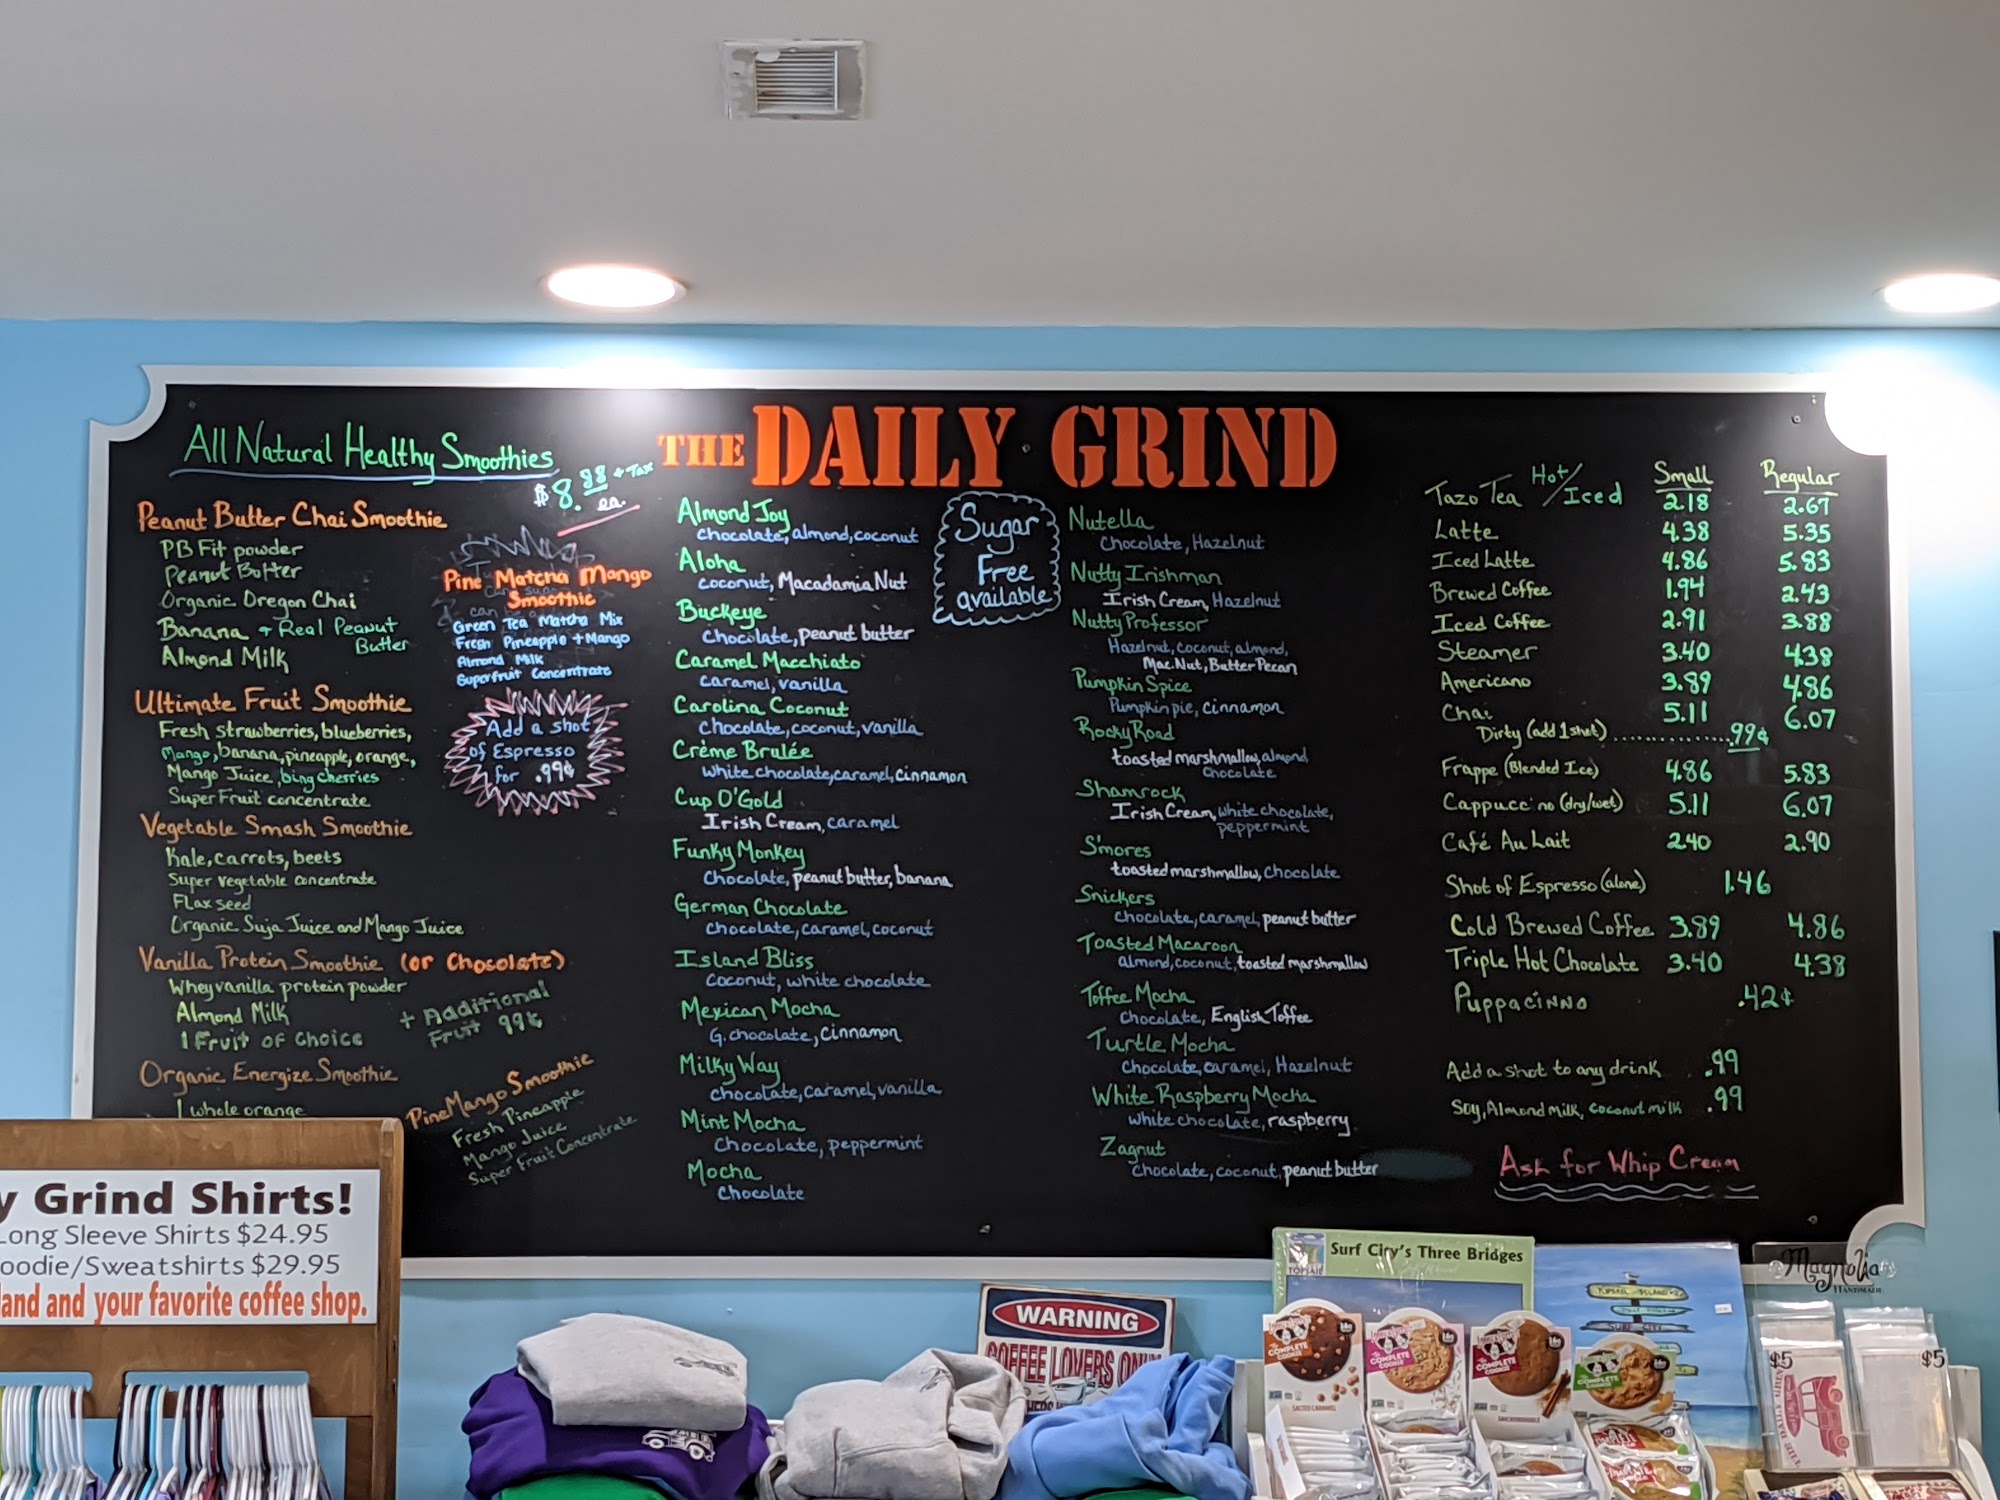 THE DAILY GRIND
All Natural Healthy Smoothies
$8.98 + Tax
ea.
Peanut Butter Chai Smoothie
PB Fit powder
Peanut Butter
Organic Oregon Chai
Banana + Real Peanut
Butter
Almond Milk
Ultimate Fruit Smoothie
Fresh strawberries, blueberries,
Mango, banana, pineapple, orange,
Mango Juice, bing cherries
Super Fruit concentrate
Vegetable Smash Smoothie
Kale, carrots, beets
Super vegetable concentrate
Flax seed
Organic Suja Juice and Mango Juice
Vanilla Protein Smoothie (or Chocolate)
Whey vanilla protein powder
Almond Milk
1 Fruit of Choice
+ Additional
Fruit 99¢
Organic Energize Smoothie
1 whole orange
Pine Matcha Mango
Smoothie
Green Tea Matcha Mix
Fresh Pineapple + Mango
Almond Milk
Superfruit Concentrate
Add a shot
of Espresso
for .99¢
PineMango Smoothie
Fresh Pineapple
Mango Juice
Super Fruit Concentrate
Almond Joy
Chocolate, almond, coconut
Aloha
coconut, Macadamia Nut
Buckeye
Chocolate, peanut butter
Caramel Macchiato
caramel, vanilla
Carolina Coconut
Chocolate, coconut, vanilla
Crème Brulée
White chocolate, caramel, cinnamon
Cup O'Gold
Irish Cream, caramel
Funky Monkey
Chocolate, peanut butter, banana
German Chocolate
Chocolate, caramel, coconut
Island Bliss
Coconut, white chocolate
Mexican Mocha
G. chocolate, Cinnamon
Milky Way
chocolate, caramel, vanilla
Mint Mocha
Chocolate, peppermint
Mocha
Chocolate
Sugar
Free
available
Nutella
Chocolate, Hazelnut
Nutty Irishman
Irish Cream, Hazelnut
Nutty Professor
Hazelnut, coconut, almond,
Mac. Nut, Butter Pecan
Pumpkin Spice
Pumpkin pie, cinnamon
Rocky Road
toasted marshmallow, almond,
Chocolate
Shamrock
Irish Cream, white chocolate,
peppermint
S'mores
toasted marshmallow, Chocolate
Snickers
chocolate, caramel, peanut butter
Toasted Macaroon
almond, coconut, toasted marshmallow
Toffee Mocha
Chocolate, English Toffee
Turtle Mocha
Chocolate, caramel, Hazelnut
White Raspberry Mocha
White chocolate, raspberry
Zagnut
Chocolate, coconut, peanut butter
Small Regular
Tazo Tea Hot/Iced 2.18 2.67
Latte 4.38 5.35
Iced Latte 4.86 5.83
Brewed Coffee 1.94 2.43
Iced Coffee 2.91 3.88
Steamer 3.40 4.38
Americano 3.89 4.86
Chai 5.11 6.07
Dirty (add 1 shot) .............. .99¢
Frappe (Blended Ice) 4.86 5.83
Cappucc no (dry/wet) 5.11 6.07
Café Au Lait 2.40 2.90
Shot of Espresso (alone) 1.46
Cold Brewed Coffee 3.89 4.86
Triple Hot Chocolate 3.40 4.38
Puppacinno .42¢
Add a shot to any drink .99
Soy, Almond milk, coconut milk .99
Ask for Whip Cream
y Grind Shirts!
Long Sleeve Shirts $24.95
oodie/Sweatshirts $29.95
land and your favorite coffee shop.
WARNING
COFFEE LOVERS ONLY
Surf City's Three Bridges
TOPSAIL
Magnolia
HANDMADE
COMPLETE
COOKIE
SALTED CARAMEL
COMPLETE
COOKIE
COMPLETE
COOKIE
SNICKERDOODLE
SURF CITY
$5
$5